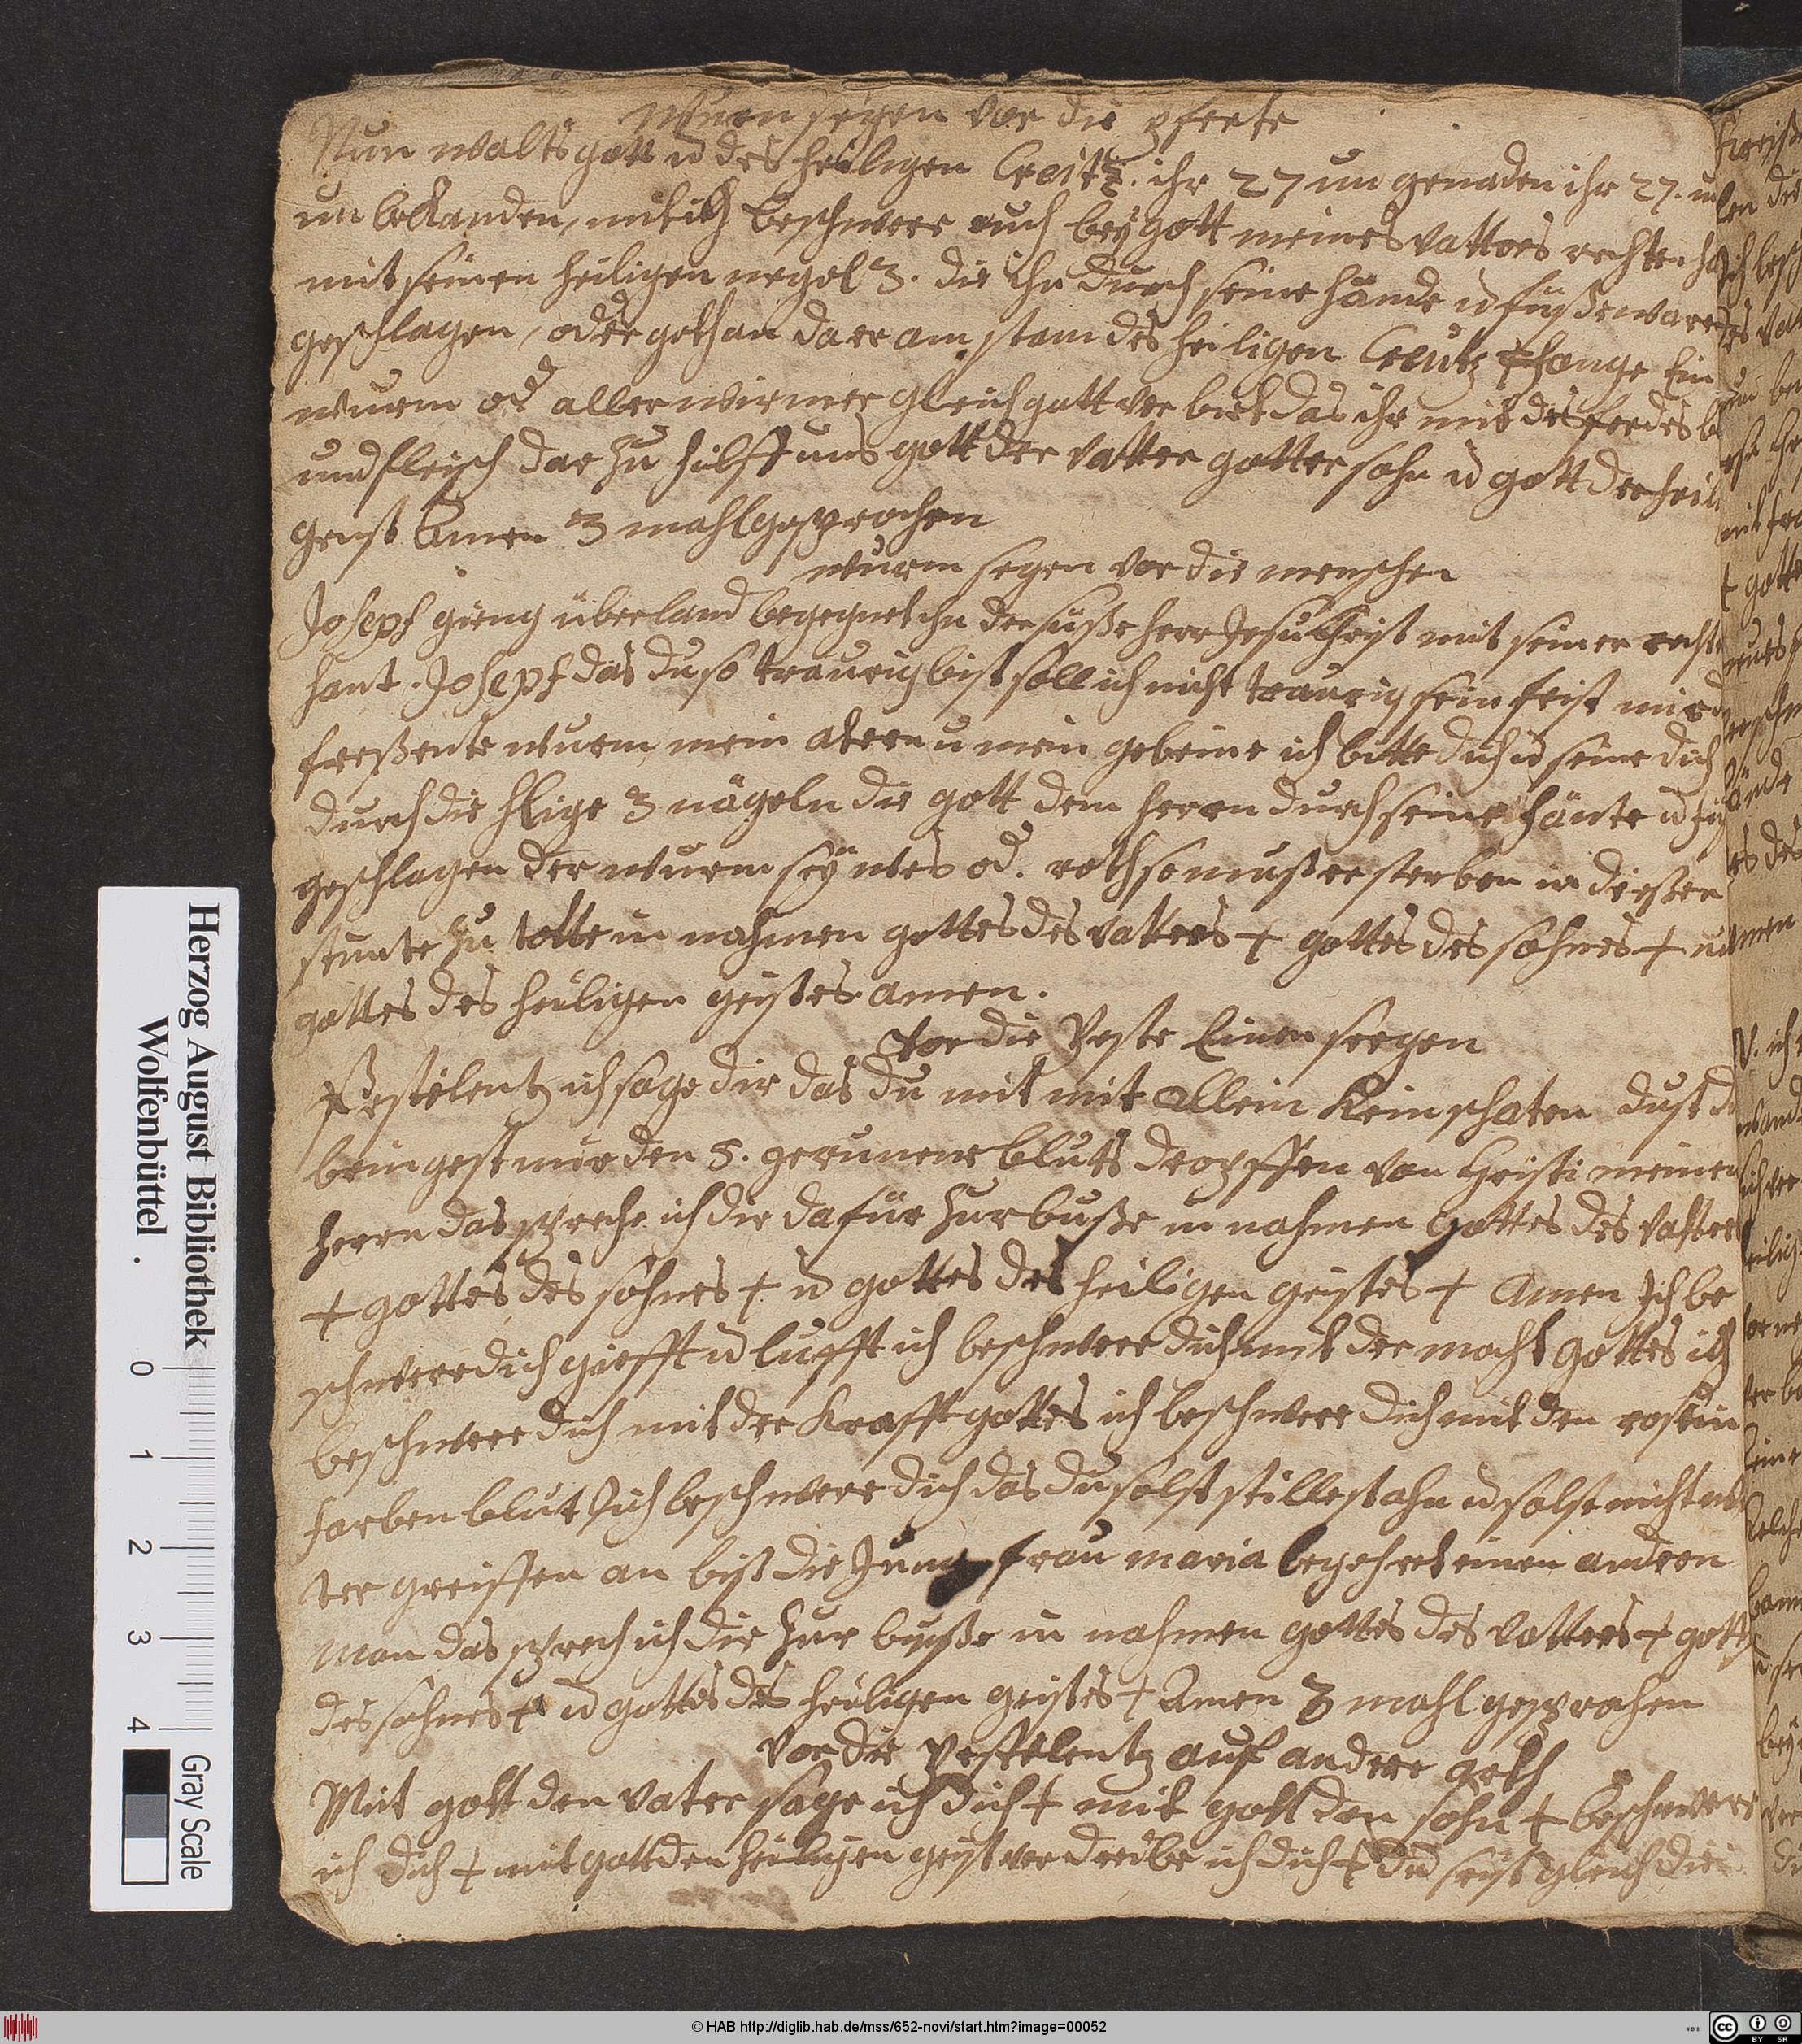 Wurm segen vor die pferte
Nun walts gott u des heiligen Creitz. ihr 27 un genaden ihr 27. u
un bekanden, mit ich beschwere euch bey gott meines vatters rechten ha
mit seinen heiligen negel 3. die ihn durch seine hände u füße waren
geschlagen, oder gethan da er am stam des heiligen Creutz hange Ein
wurm od aller wirmer gleich gott ver biet das ihr mit des ferdes b
und fleisch dar zu hilff uns gott der vatter gotter sohn u gott der heil
geist Amen 3 mahl gesprochen
wurm segen vor die menschen
Joseph gieng über land begegnet ihn der süße herr Jesu Christ mit seiner rechte
hant. Joseph das du so traurig bist soll ich nicht traurig sein frist mir d
freßente wurm mein atern u mein gebeine ich bitte dich u seine dich
durch die hlige 3 nägeln die gott dem herrn durch seine hänte u fü
geschlagen der wurm sey weis od. roth so muß er sterben in dießer
stunte zu totte in nahmen gottes des vatters + gottes des sohnes + u
gottes des heiligen geistes amen.
vor die Peste Einen seegen
Pestelentz ich sage dir das du mit mit allein kein schaten dust d
bringest mir den 5. gerunene bluts dropffen von Christi meinen
herrn das spreche ich dir dafür zur buße in nahmen Gottes des vatter
+ gottes des sohnes + u gottes des heiligen geistes + Amen Ich be
schwere dich giefft u lufft ich beschwere dich mit der macht gottes ich
beschwere dich mit der krafft gottes ich beschwere dich mit den rosein
farben blut Ich beschwere dich das du solst stille stahn u solst nicht wei
ter greiffen an biß die Jung frau maria begehret einen andern
man das sprech ich dir zur buße in nahmen gottes des vatters + gott
des sohnes + u gottes des heiligen geistes + Amen 3 mahl gesprochen
vor die pestelentz auf andere arth
Mit gott den vater sage ich dich + mit gott den sohn + beschwere
ich dich + mit gott den heiligen geist verdreibe ich dich + du seist gleich die
Herzog August Bibliothek
Wolfenbüttel
0 1 2 3 4
Gray Scale
© HAB http://diglib.hab.de/mss/652-novi/start.htm?image=00052
cc BY SA